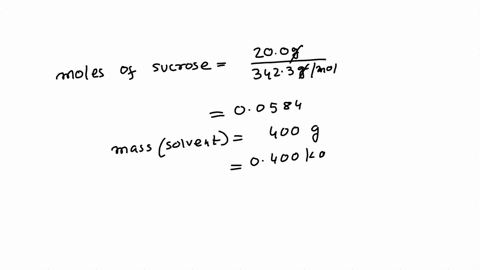 moles of sucrose = 20.0g / 342.3 g/mol
= 0.0584
mass (solvent) = 400 g
= 0.400 kg